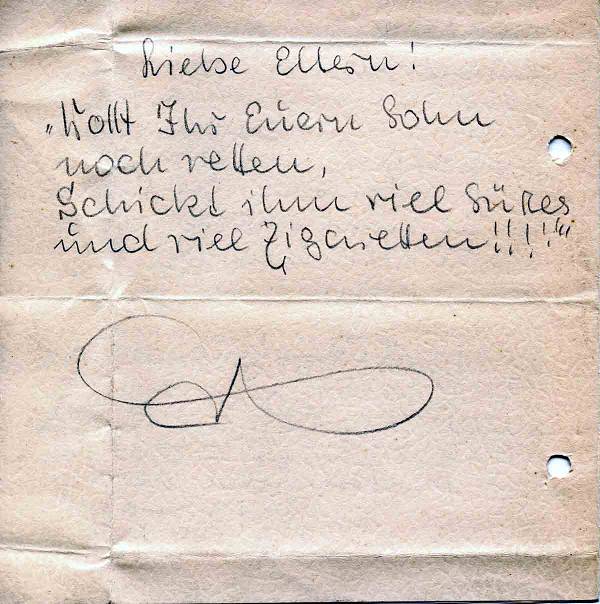 Liebe Eltern!
„Wollt Ihr Euern Sohn
noch retten,
Schickt ihm viel Süßes
und viel Zigaretten!!!!“